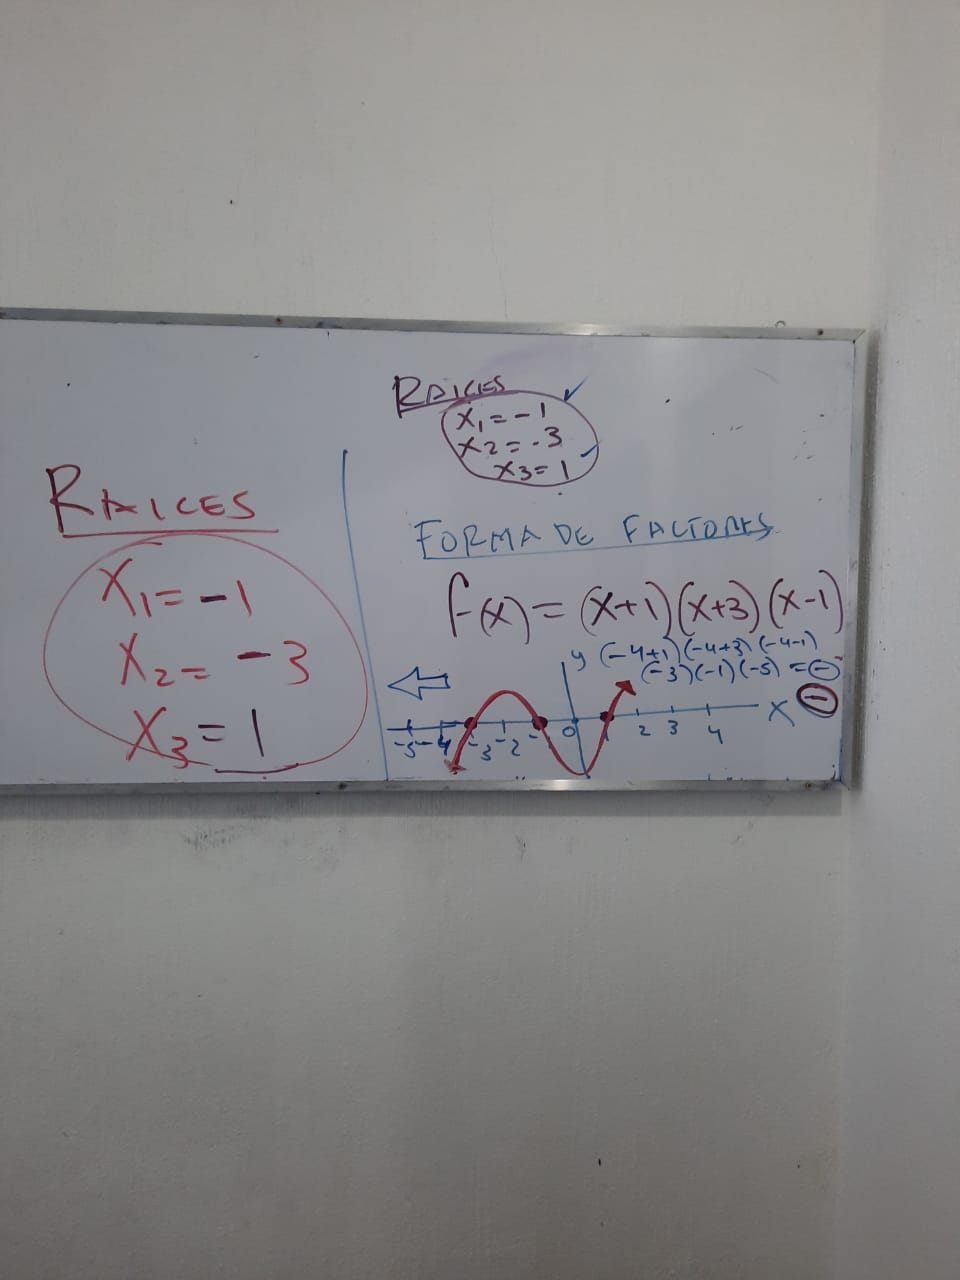 RAICES
X₁ = -1
X₂ = -3
X₃ = 1
RAICES
X₁ = -1
X₂ = -3
X₃ = 1
FORMA DE FACTORES
f(x) = (x+1)(x+3)(x-1)
(-4+1)(-4+3)(-4-1)
(-3)(-1)(-5) = -
-
y
x
-5 -4 -3 -2 - 0 1 2 3 4